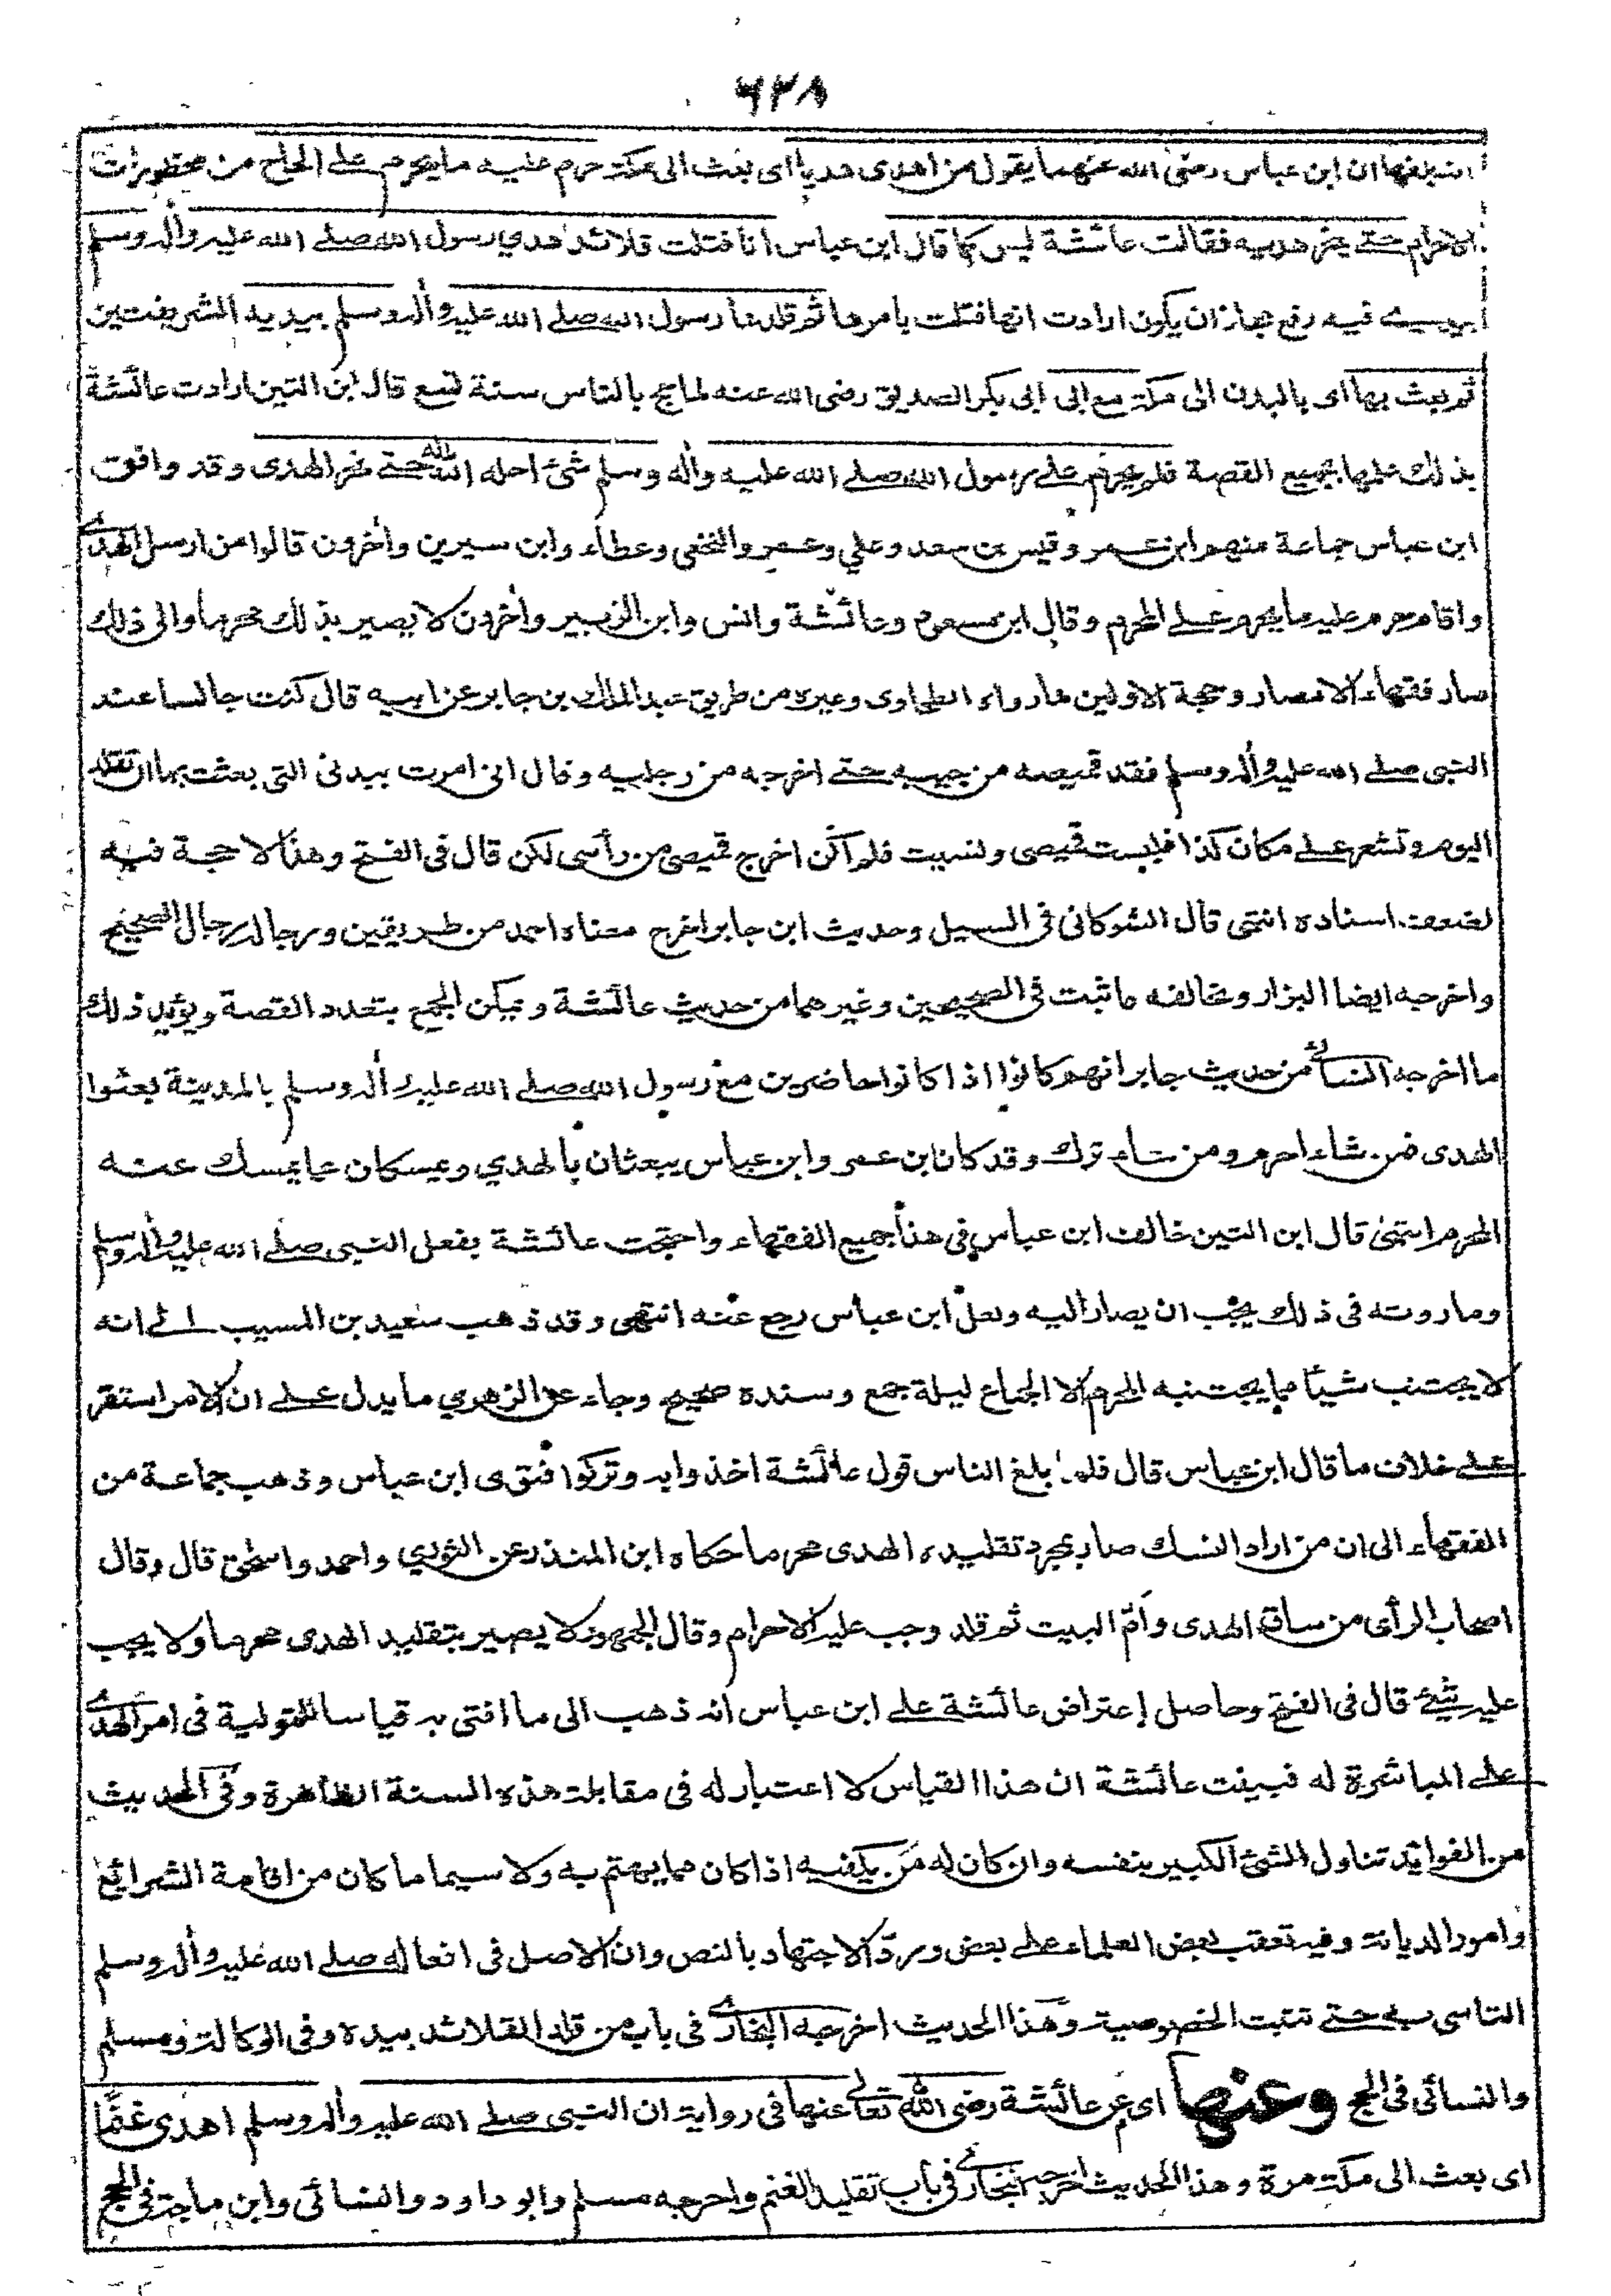 ٦٢٨
انه بلغها ان ابن عباس رضى الله عنهما يقول من اهدى هديا اى بعث الى مكة حرم عليه ما يحرم على الحاج من محظورات
الاحرام حتے ينحر هديه فقالت عائشة ليس كما قال ابن عباس انا فتلت قلائد هدي رسول الله صلے الله عليه واٰله وسلم
بيدے فيه رفع مجاز ان يكون ارادت انها فتلت بامرها ثم قلدها رسول الله صلے الله عليه واٰله وسلم بيديه الشريفتين
ثم بعث بها اى بالبدن الى مكة مع ابى ابى بكر الصديق رضى الله عنه لما حج بالناس سنة تسع قال ابن التين ارادت عائشة
بذلك علمها بجميع القصة فلم يحرم على رسول الله صلے الله عليه واٰله وسلم شئ احله الله له حتے نحر الهدى وقد وافق
ابن عباس جماعة منهم ابن عمر وقيس بن سعد وعلي وعمر والنخعى وعطاء وابن سيرين واٰخرون قالوا من ارسل الهدے
واقام حرم عليه ما يحرم علے المحرم وقال ابن مسعود وعائشة وانس وابن الزبير واٰخرون لا يصير بذلك محرما والى ذلك
صار فقهاء الامصار وحجة الاولين ما رواه الطحاوى وغيره من طريق عبد الملك بن جابر عن ابيه قال كنت جالسا عند
النبى صلے الله عليه واٰله وسلم فقد قميصه من جيبه حتے اخرجه من رجليه وقال انى امرت ببدنى التى بعثت بها ان تقلد
اليوم وتشعر علے مكان كذا فلبست قميصى ونسيت فلم اكن اخرج قميصى من رأسى لكن قال فى الفتح وهذا لا حجة فيه
لضعف اسناده انتهى قال الشوكانى فى السيل وحديث ابن جابر اخرج معناه احمد من طريقين ورجاله رجال الصحيح
واخرجه ايضا البزار ويخالفه ما ثبت فى الصحيحين وغيرهما من حديث عائشة ويمكن الجمع بتعدد القصة ويؤيد ذلك
ما اخرجه النسائے من حديث جابر انهم كانوا اذا كانوا حاضرين مع رسول الله صلے الله عليه واٰله وسلم بالمدينة بعثوا
الهدى فمن شاء احرم ومن شاء ترك وقد كان ابن عمر وابن عباس يبعثان بالهدي ويمسكان عما يمسك عنه
المحرم انتهىٰ قال ابن التين خالف ابن عباس فى هذا جميع الفقهاء واحتجت عائشة بفعل النبى صلے الله عليه واٰله وسلم
وما روته فى ذلك يجب ان يصار اليه ولعل ابن عباس رجع عنه انتهى وقد ذهب سعيد بن المسيب الے انه
لا يجتنب شيئا مما يجتنبه المحرم الا الجماع ليلة جمع وسنده صحيح وجاء عن الزهري ما يدل علے ان الامر استقر
علے خلاف ما قال ابن عباس قال فلما بلغ الناس قول عائشة اخذوا به وتركوا فتوى ابن عباس وذهب جماعة من
الفقهاء الى ان من اراد النسك صار بمجرد تقليده الهدى محرما حكاه ابن المنذر عن الثوري واحمد واسحٰق قال وقال
اصحاب الرأى من ساق الهدى وأمّ البيت ثم قلد وجب عليه الاحرام وقال الجمهور لا يصير بتقليد الهدى محرما ولا يجب
عليه شئ قال فى الفتح وحاصل إعتراض عائشة علے ابن عباس انه ذهب الى ما افتى به قياسا للتولية فى امر الهدے
علے المباشرة له فبينت عائشة ان هذا القياس لا اعتبار له فى مقابلة هذه السنة الظاهرة وفى الحديث
من الفوائد تناول الشئ الكبير بنفسه وان كان له مَن يكفيه اذا كان مما يهتم به ولا سيما ما كان من اقامة الشرائع
وامور الديانة وفيه تعقب بعض العلماء علے بعض ورد الاجتهاد بالنص وان الاصل فى افعاله صلے الله عليه واٰله وسلم
التاسى به حتے تثبت الخصوصية وهذا الحديث اخرجه البخارے فى باب من قلد القلائد بيده وفى الوكالة ومسلم
والنسائى فى الحج وعنها اى عن عائشة رضى الله تعالے عنها فى رواية ان النبى صلے الله عليه واٰله وسلم اهدى غنمًا
اى بعث الى مكة مرة وهذا الحديث اخرجه البخارے فى باب تقليد الغنم واخرجه مسلم وابو داود والنسائى وابن ماجة فى الحج